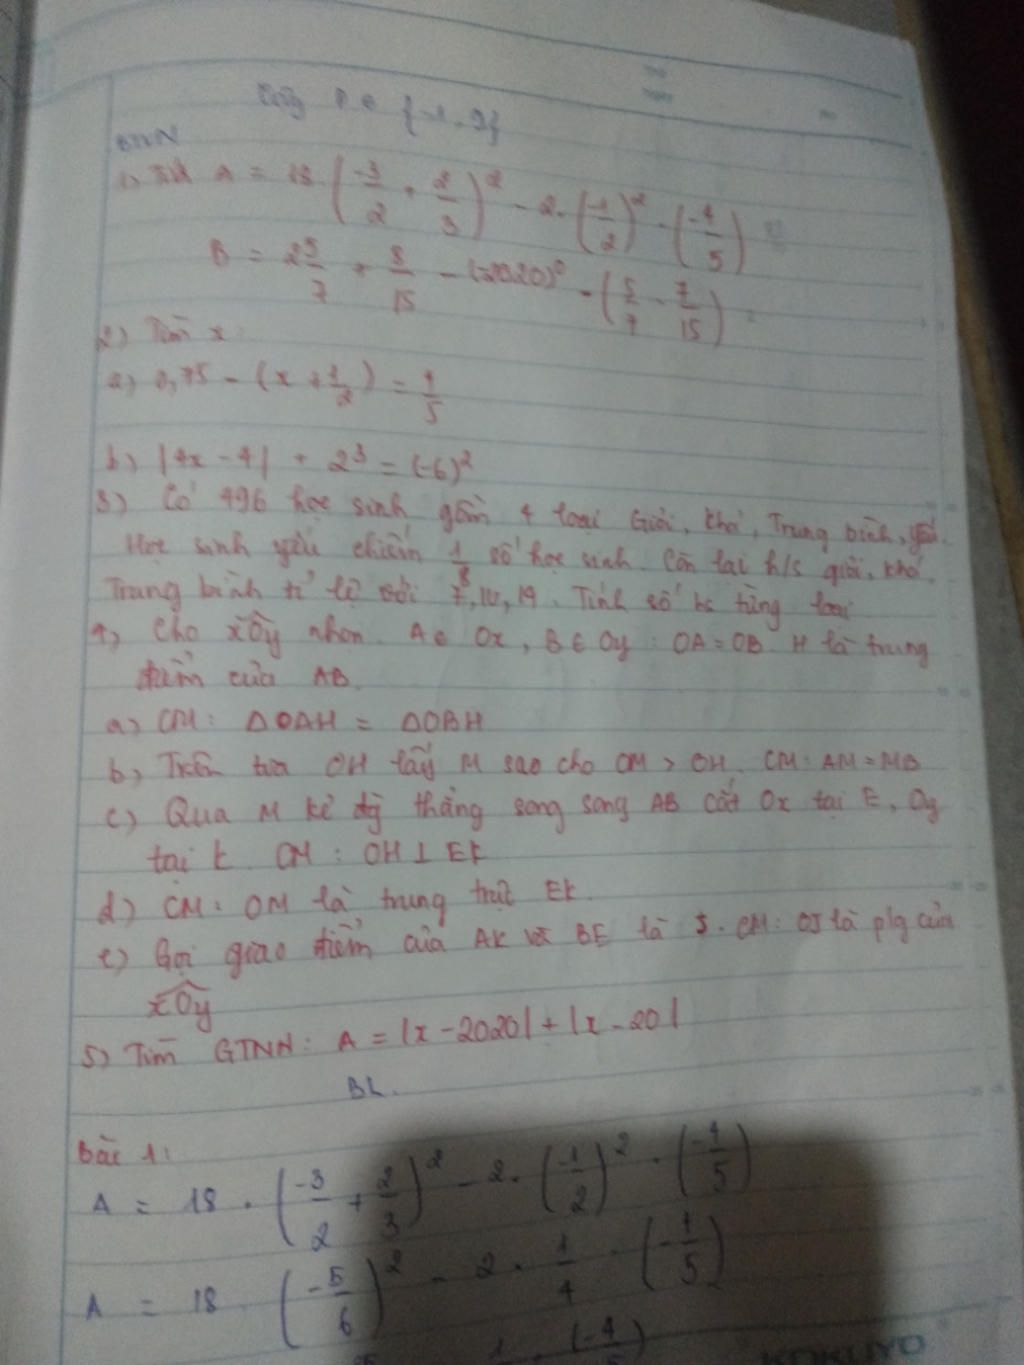 P ∈ {-1, 9}
BTVN
1) Tính A = 18 · (-3/2 + 2/3)² - 2 · (-1/2)² · (-4/5)
B = 2 5/7 + 8/15 - (-2020)⁰ - (5/7 - 7/15)
2) Tìm x:
a) 0,75 - (x + 1/2) = 4/5
b) |4x - 4| + 2³ = (-6)²
3) Có 496 học sinh gồm 4 loại Giỏi, khá, Trung bình, yếu.
Học sinh yếu chiếm 1/8 số học sinh. Còn lại h/s giỏi, khá,
Trung bình tỉ lệ với 7, 14. Tính số hs từng loại
4) Cho xOy nhọn. A ∈ Ox, B ∈ Oy : OA = OB. H là trung
điểm của AB.
a) CM: ΔOAH = ΔOBH
b) Trên tia OH lấy M sao cho OM > OH. CM: AM = MB
c) Qua M kẻ đg thẳng song song AB cắt Ox tại E, Oy
tại K CM : OH ⊥ EK
d) CM: OM là trung trực EK.
e) Gọi giao điểm của AK và BE là J. CM: OJ là p/g của
xOy
5) Tìm GTNN: A = |x - 2020| + |x - 20|
BL.
Bài 1:
A = 18 · (-3/2 + 2/3)² - 2 · (-1/2)² · (-4/5)
A = 18 (-5/6)² - 2 · 1/4 · (-4/5)
KOKUYO